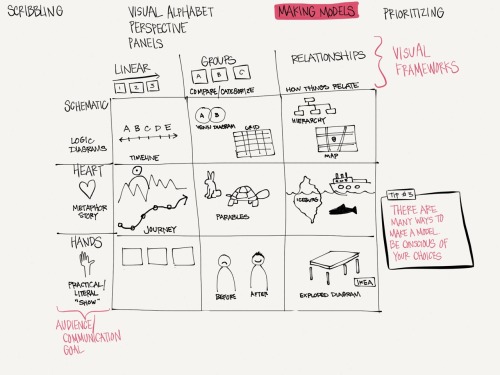 SCRIBBLING
VISUAL ALPHABET
PERSPECTIVE
PANELS
MAKING MODELS
PRIORITIZING
LINEAR
1 2 3
GROUPS
A B C
COMPARE/CATEGORIZE
RELATIONSHIPS
HOW THINGS RELATE
VISUAL
FRAMEWORKS
SCHEMATIC
LOGIC
DIAGRAMS
A B C D E
TIMELINE
A B
VENN DIAGRAM
GRID
HIERARCHY
MAP
HEART
METAPHOR
STORY
JOURNEY
PARABLES
ICEBURG
HANDS
PRACTICAL/
LITERAL
"SHOW"
BEFORE
AFTER
IKEA
EXPLODED DIAGRAM
TIP #3
THERE ARE
MANY WAYS TO
MAKE A MODEL.
BE CONSCIOUS OF
YOUR CHOICES
AUDIENCE/
COMMUNICATION
GOAL